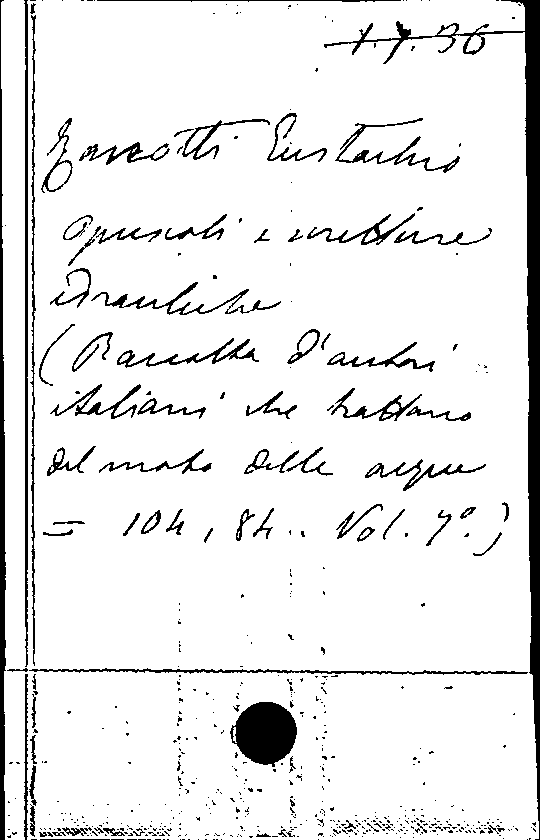 1.7.36
Zanotti Eustachio
Opuscoli e scritture
idrauliche
(Raccolta d'autori
italiani che trattano
del moto delle acque
= 104, 84.. Vol. 7º.)